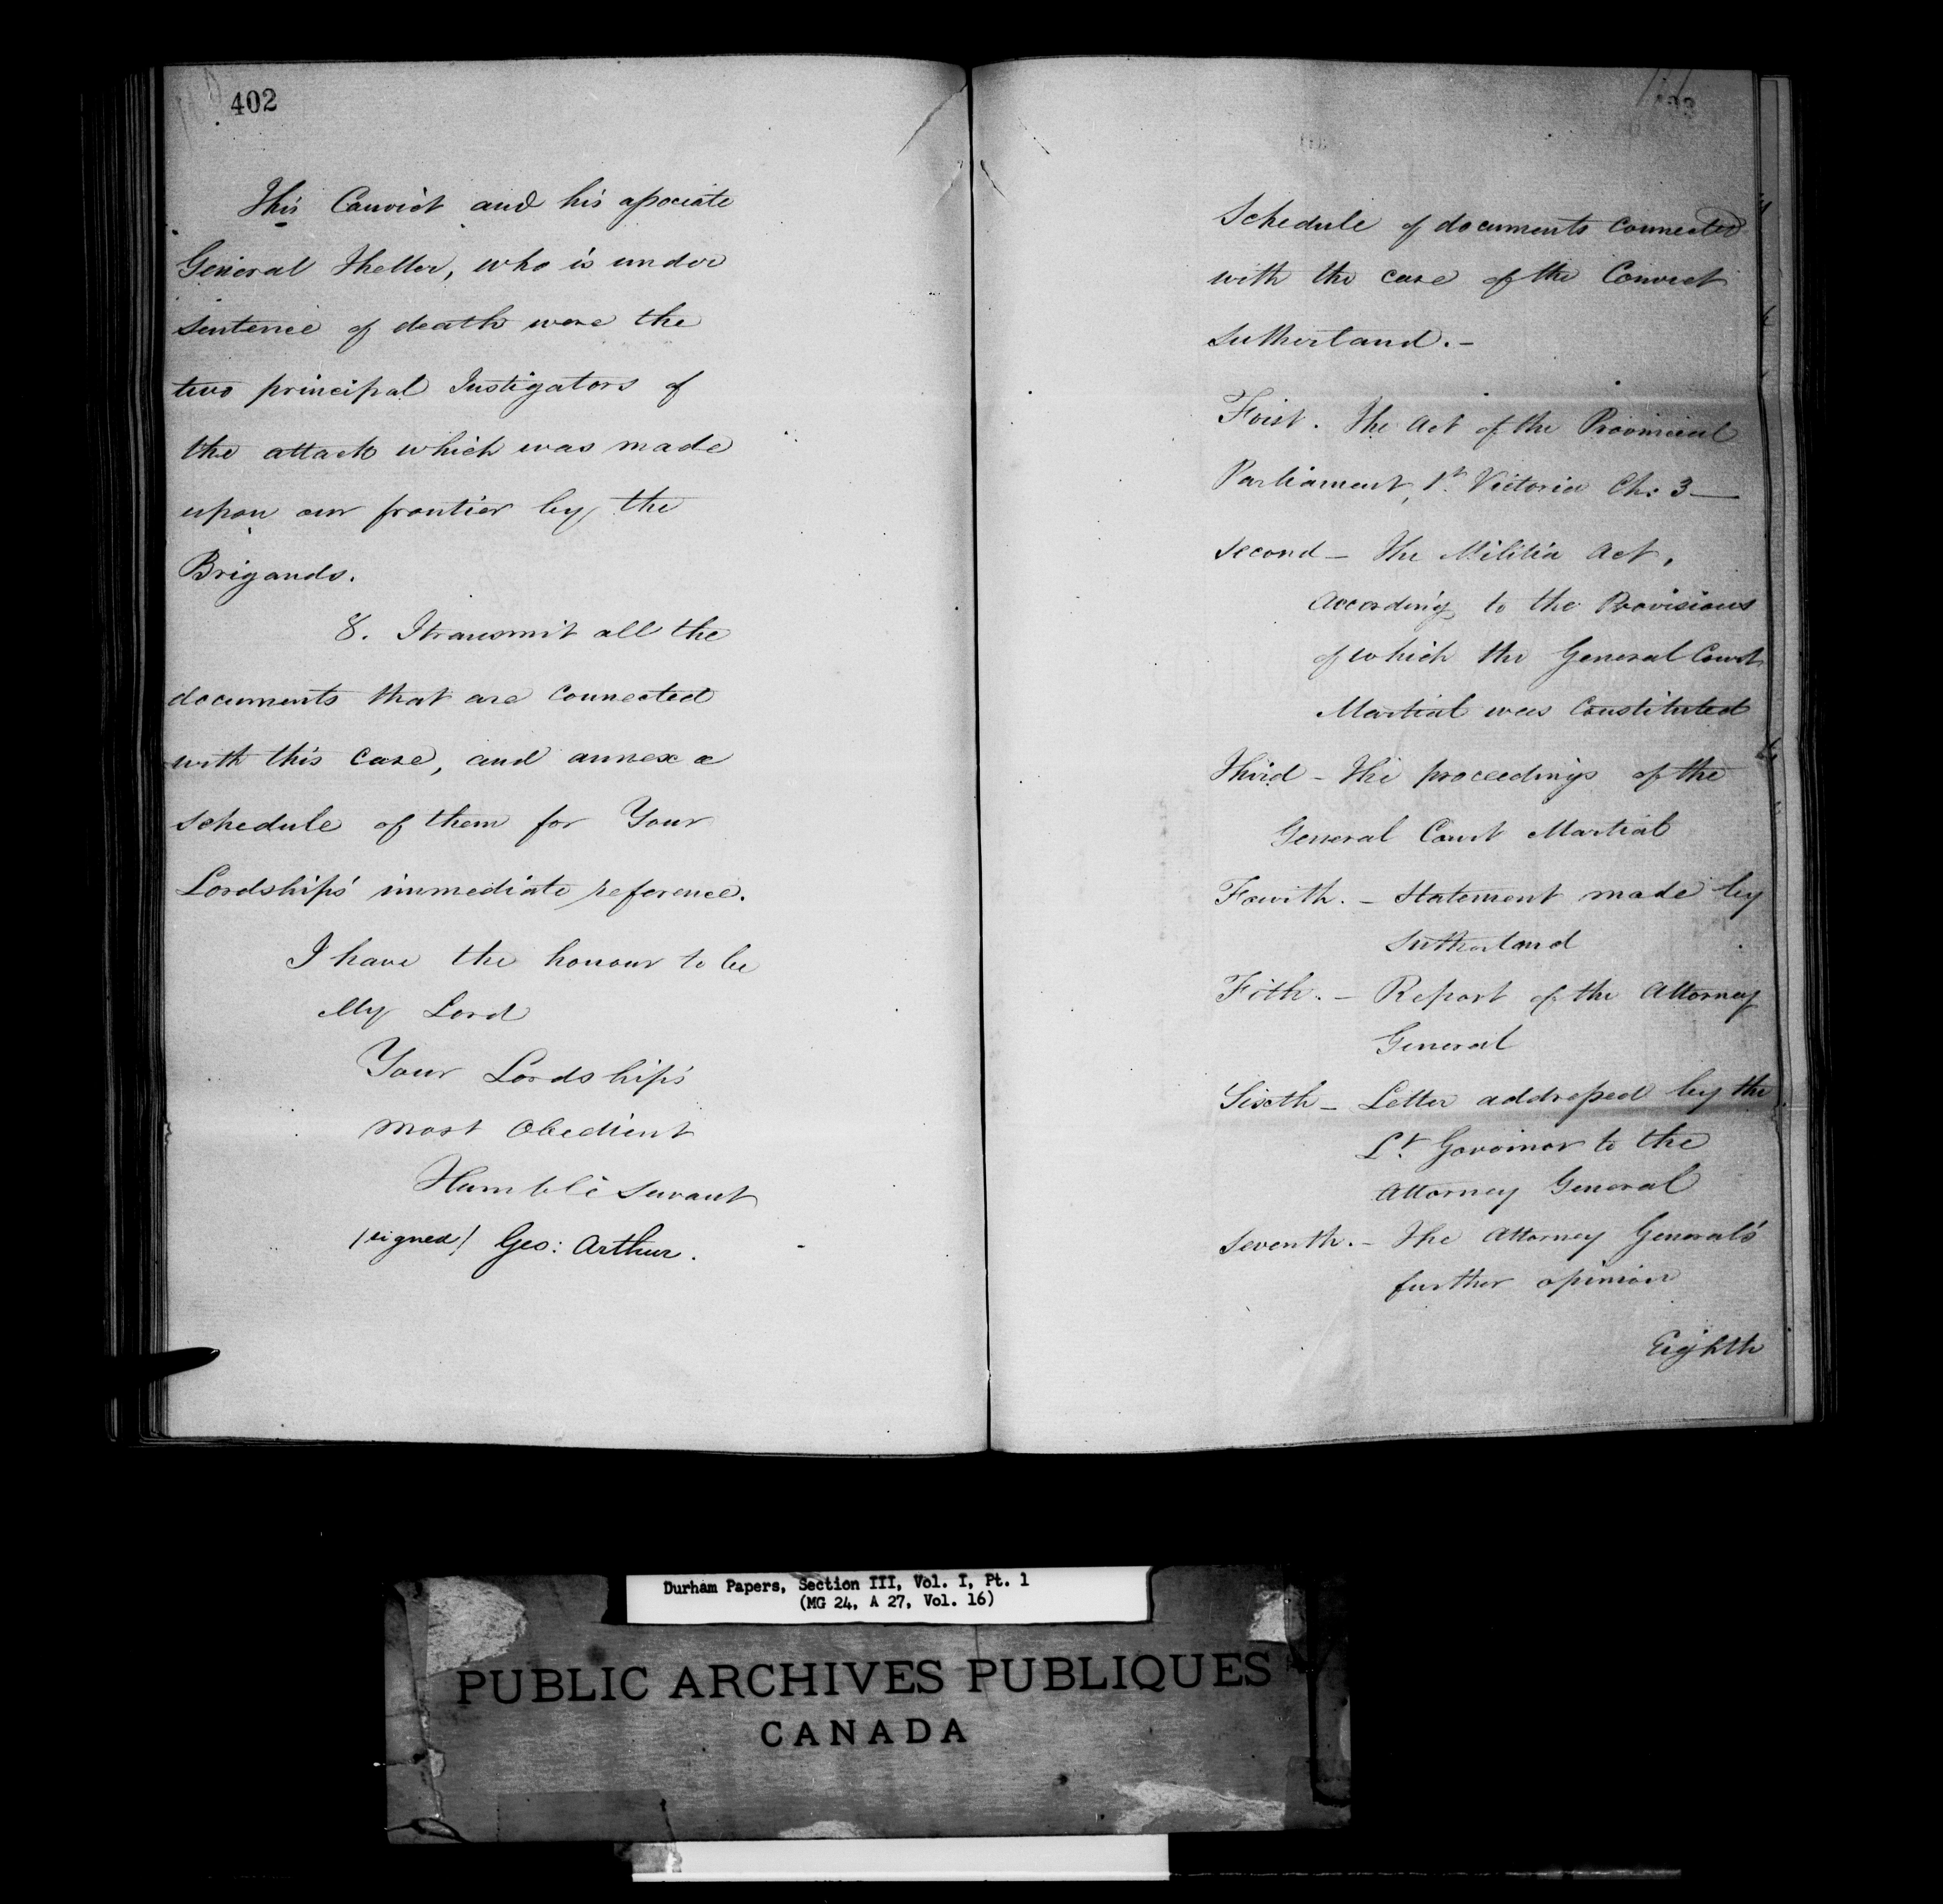 402
This Convict and his associate
General Theller, who is under
sentence of death were the
two principal Instigators of
the attack which was made
upon our frontier by the
Brigands.
8. I transmit all the
documents that are connected
with this case, and annex a
schedule of them for Your
Lordship's immediate reference.
I have the honour to be
My Lord
Your Lordship's
most Obedient
Humble Servant
(signed) Geo: Arthur.
Schedule of documents connected
with the case of the Convict
Sutherland.-
First. The Act of the Provincial
Parliament, 1st Victoria Ch: 3—
Second - The Militia Act,
According to the Provisions
of which the General Court
Martial was Constituted
Third - The proceedings of the
General Court Martial
Fourth. - Statement made by
Sutherland
Fith. - Report of the Attorney
General
Sixth - Letter addressed by the
Lt Governor to the
Attorney General
Seventh. - The Attorney General's
further opinion
Eighth
Durham Papers, Section III, Vol. I, Pt. 1
(MG 24, A 27, Vol. 16)
PUBLIC ARCHIVES PUBLIQUES
CANADA